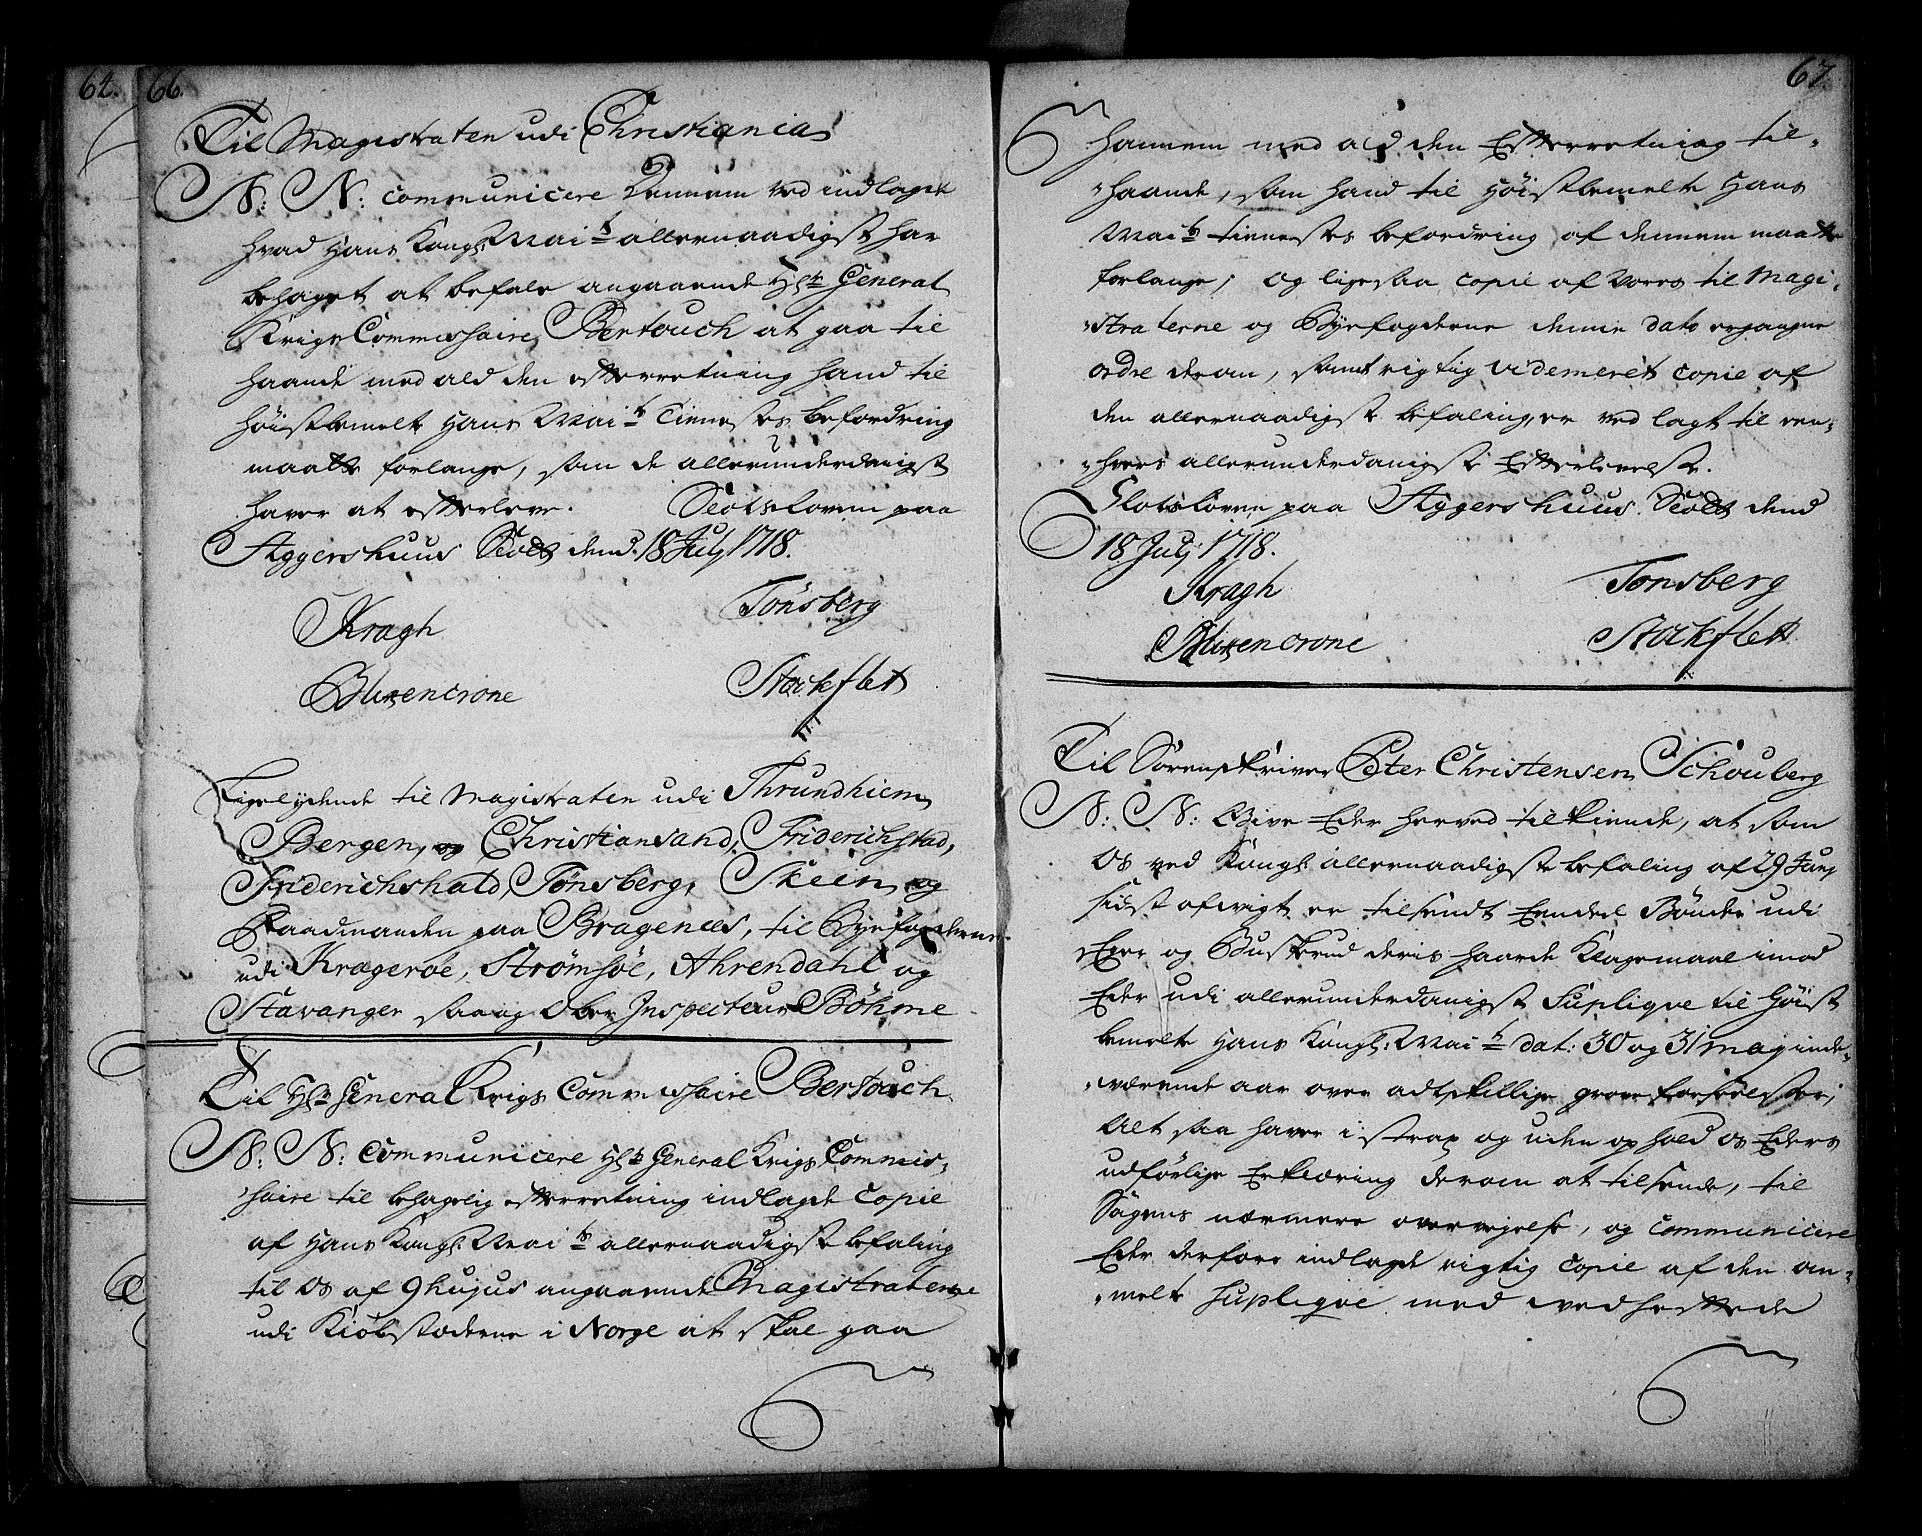 64. 66.
Til Magistraten udi Christiania
N: N: communicere Dennem ved indlagde
hvad Hans Kongl: Mai:ts allernaadigst har
behaget at befale angaaende Hr: General
Krigs Commissaire Bertouch at gaa til
haande med ald den efterretning hand til
høistbemelte Hans Mai:ts Tienestes befordring
maatte forlange, som de allerunderdanigst
haver at efterleve. Slotsloven paa
Aggershuus Slodt dend. 18 July 1718.
Kragh Tönsberg
Blixencrone Stockflet
Ligelydende til Magistraten udi Thrundhiem
Bergen, og Christiansand, Friderichstad,
Friderichshald, Tønsberg, Skeen, og
Raadmanden paa Bragenæs, til Byefogderne
udi Kragerøe, Strømsøe, Ahrendahl og
Stavanger saa og Ober Inspecteur Böhme
Til Hr: General Krigs Commissaire Bertouch
N: N: communicere Hr: General Krigs Commis-
saire til behagelig efterretning indlagde Copie
af Hans Kongl: Mai:ts allernaadigste befaling
til os af 9 hujus angaaende Magistraterne
udi Kiøbstæderne i Norge at skal gaa
67.
hannem med ald den Efterretning til-
haande, som hand til høistbemelte Hans
Mai:ts tienestes befordring af dennem maatte
forlange; og ligesaa copie af vores til Magi-
straterne og Byefogderne denne dato ergangne
ordre derom, samt rigtig videmeret copie af
den allernaadigste befaling, er ved lagt til een-
hvers allerunderdanigste Efterlevelse.
Slotsloven paa Aggershuus Slodt dend
18 July 1718.
Kragh Tonsberg
Blixencrone Stockflett
Til Sorenskriver Peter Christensen Schouberg
N: N: Give Eder herved tilkiende, at som
os ved Kongl: allernaadigste befaling af 29 Juny
sidst afvigt er tilsendt Eendeel Bønder udi
Eger og Buskerud deris haarde Klagemaal imod
Eder udi allerunderdanigst Suplique til Høist
bemelte Hans Kongl: Mai:ts dat: 30 og 31 may inde-
værende aar over adtskillige grove forseelser;
Alt saa haver i strax og uden ophold os Eders
udførlige Erklæring derom at tilsende, til
Sagens nærmere overvejelse, og communicere
Eder derfore indlagde rigtig copie af den om-
melte Suplique med vedheftede